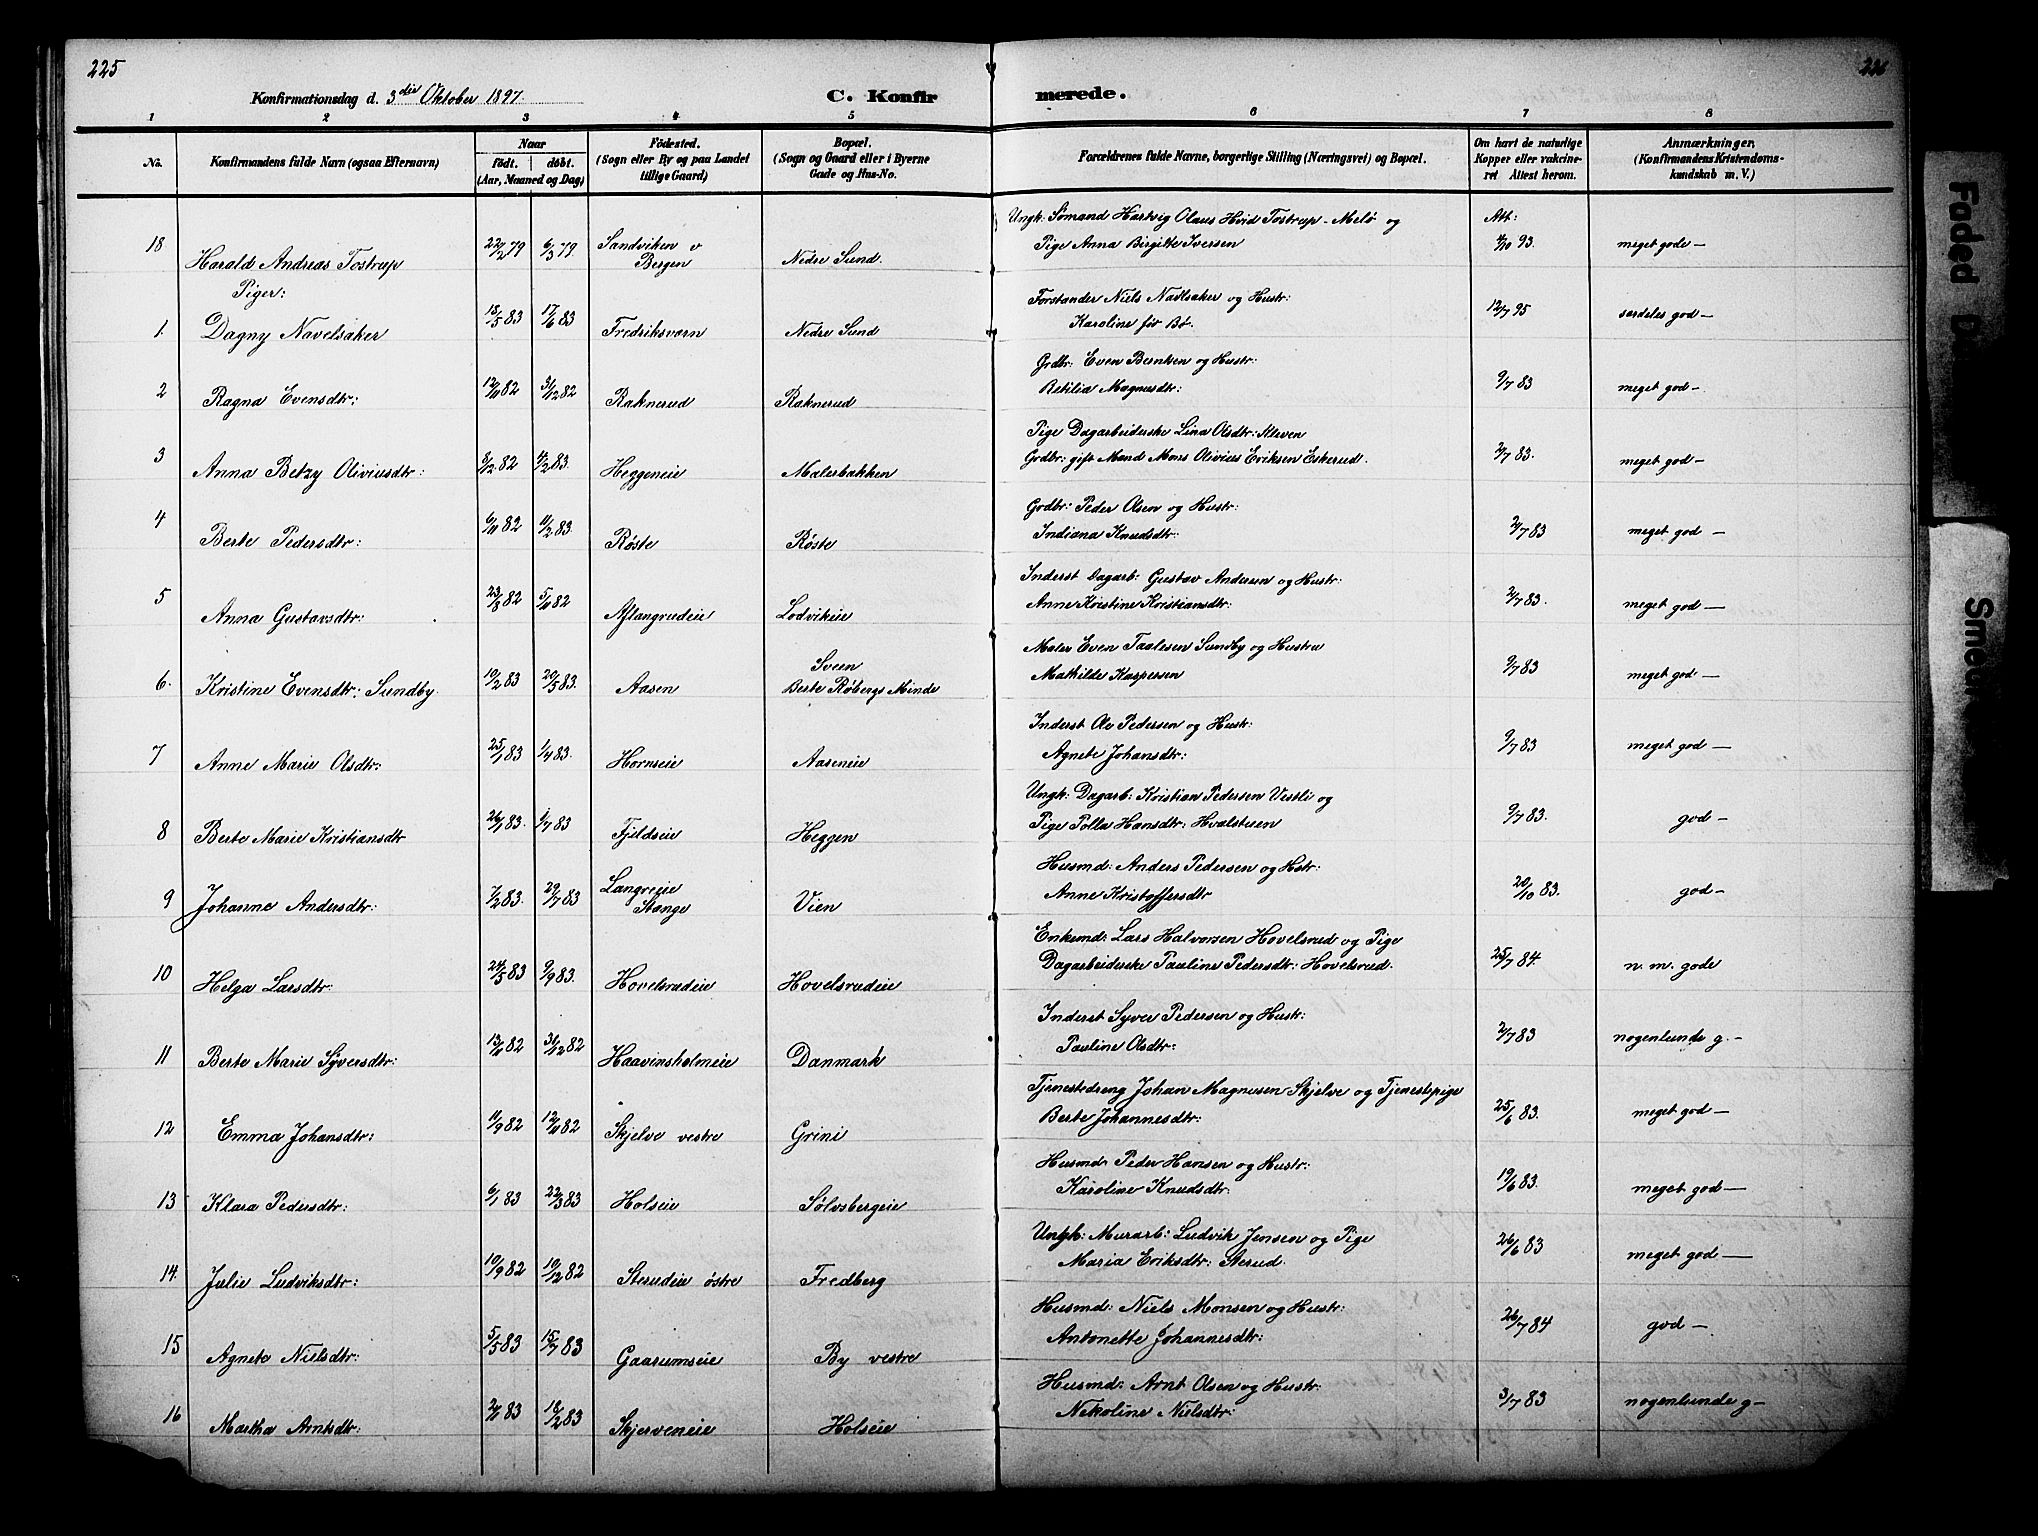 225
226
Konfirmationsdag d. 3die Oktober 1897.
C. Konfirmerede.
1 2 3 4 5 6 7 8
No.
Konfirmandens fulde Navn (ogsaa Efternavn)
Naar
født. døbt.
(Aar, Maaned og Dag)
Fødested.
(Sogn eller By og paa Landet
tillige Gaard)
Bopæl.
(Sogn og Gaard eller i Byerne
Gade og Hus-No.
Forældrenes fulde Navne, borgerlige Stilling (Næringsvei) og Bopæl.
Om havt de naturlige
Kopper eller vakcine-
ret Attest herom.
Anmærkninger,
(Konfirmandens Kristendoms-
kundskab m. V.)
Ungk: Sømand Hartvig Olaus Hvid Tostrup - Melø og Att:
18. Harald Andreas Tostrup 22/2 79 6/3 79. Sandviken v Bergen Nedre Sund. Pige Anna Birgitte Iversen 4/10 93. meget gode -
Piger:
Forstander Niels Navlsaker og Hustr:
1. Dagny Navelsaker 15/5 83 17/6 83 Fredriksværn Nedre Sund Karoline før Bø. 12/7 95 særdeles god -
Grdbr: Even Berntsen og Hustr:
2 Ragna Evensdtr: 12/11 82 31/12 82 Raknerud Raknerud Betilia Magnusdtr: 9/7 83 meget god -
Pige Dagarbeiderske Lina Olsdtr: Kleven
3 Anna Betzy Oliviusdtr: 8/12 82 4/2 83. Heggeneie Malerbakken Grdbr: gift Mand Mons Olivius Eriksen Eskerud. 2/7 83. meget god -
Grdbr: Peder Olsen og Hustr:
4 Berte Pedersdtr: 6/11 82 11/2 83. Røste Røste Indiana Knudsdtr: 2/7 83 meget god -
Inderst Dagarb: Gustav Andersen og Hustr:
5 Anna Gustavsdtr: 23/8 82 5/11 82 Aflangrudeie Lodvikeie Anne Kristine Kristiansdtr: 2/7 83. meget god -
Maler Even Paalesen Sundby og Hustru
6. Kristine Evensdtr: Sundby. 19/2 83 20/5 83. Aasen Sveen Berte Røbergs Minde Mathilde Kaspersen 9/7 83 meget god -
Inderst Ole Pedersen og Hustr:
7 Anne Marie Olsdtr: 25/1 83 1/4 83. Hornseie Aaseneie Agnete Johansdtr: 9/7 83 meget god -
Ungk: Dagarb: Kristian Pedersen Vestli og
8 Berte Marie Kristiansdtr 26/1 83. 1/7 83 Fjeldseie Heggen Pige Polla Hansdtr: Hvalstuen 9/7 83. god -
Husmd: Anders Pedersen og Hstr:
9 Johanne Andersdtr: 7/2 83. 29/7 83 Langreeie Stange Vien Anne Kristoffersdtr 20/10 83. god -
Enkemd: Lars Halvorsen Hovelsrud og Pige
10 Helga Larsdtr: 24/5 83 9/9 83. Hovelsrudeie Hovelsrudeie Dagarbeiderske Pauline Pedersdtr: Hovelsrud. 25/7 84. n. m. gode
Inderst Syver Pedersen og Hustr:
11 Berte Marie Syversdtr: 13/11 82 31/12 82 Haavinsholmeie Danmark Pauline Olsdtr: 2/7 83 nogenlunde g. -
Tjenestedreng Johan Magnusen Skjelve og Tjenestepige
12 Emma Johansdtr: 11/9 82 12/11 82 Skjelve vestre Grini Berte Johannesdtr: 25/6 83. meget god -
Husmd: Peder Hansen og Hustr:
13 Klara Pedersdtr: 6/1 83 22/3 83 Holseie Sølvsbergeie Karoline Knudsdtr: 19/6 83. meget god -
Ungk: Murarb: Ludvik Jensen og Pige
14. Julie Ludviksdtr: 10/9 82 10/12 82 Sterudeie østre Fredberg Maria Eriksdtr: Sterud. 26/6 83 meget god -
Husmd: Niels Monsen og Hustr:
15 Agnete Nielsdtr: 5/5 83 15/7 83 Gaarumseie By vestre Antonette Johannesdtr: 26/7 84 god -
Husmd: Arnt Olsen og Hustr:
16 Martha Arntsdtr: 83 18/2 83 Skjerveneie Holseie Nikoline Nielsdtr: 3/7 83 nogenlunde g -
Faded D
Smea